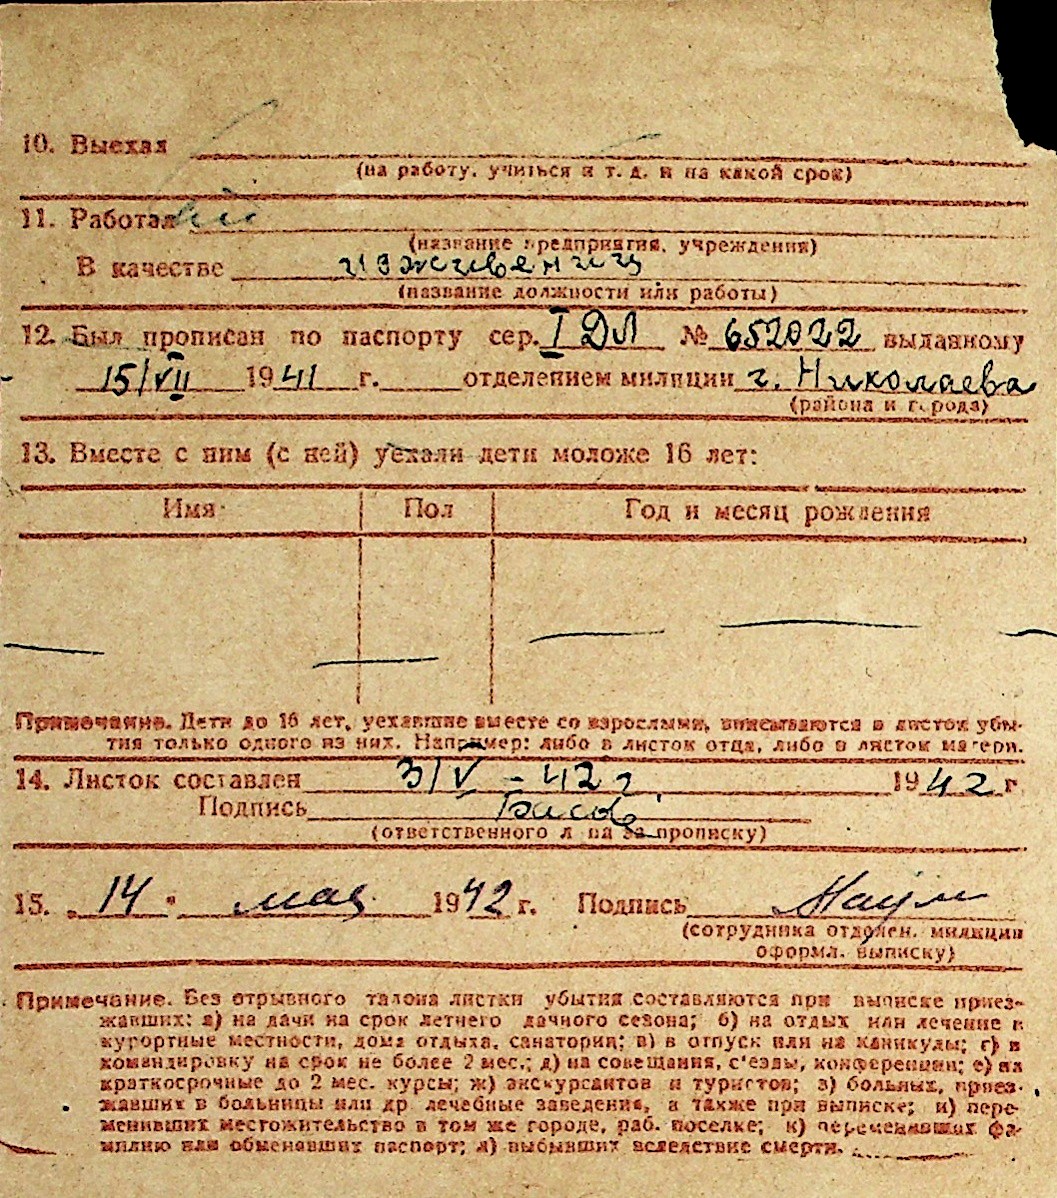 10. Выехал
(на работу, учиться и т. д. и на какой срок)
11. Работал
(название предприятия, учреждения)
В качестве иждивениц
(название должности или работы)
12. Был прописан по паспорту сер. I ДЛ № 652022 выданному
15/VII 1941 г. отделением милиции г. Николаева
(района и города)
13. Вместе с ним (с ней) уехали дети моложе 16 лет:
Имя Пол Год и месяц рождения
Примечание. Дети до 16 лет, уехавшие вместе со взрослыми, вписываются в листок убы-
тия только одного из них. Например: либо в листок отца, либо в листок матери.
14. Листок составлен 3/V - 42 г. 1942 г.
Подпись Басов
(ответственного л ца за прописку)
15. „14" мая 1942 г. Подпись
(сотрудника отделен. милиции
оформл. выписку)
Примечание. Без отрывного талона листки убытия составляются при выписке приез-
жавших: а) на дачи на срок летнего дачного сезона; б) на отдых или лечение в
курортные местности, дома отдыха, санатории; в) в отпуск или на каникулы; г) в
командировку на срок не более 2 мес.; д) на совещания, с'езды, конференции; е) на
краткосрочные до 2 мес. курсы; ж) экскурсантов и туристов; з) больных, приез-
жавших в больницы или др лечебные заведения, а также при выписке; и) пере-
менивших местожительство в том же городе, раб. поселке; к) переменивших фа-
милию или обменявших паспорт; л) выбывших вследствие смерти.